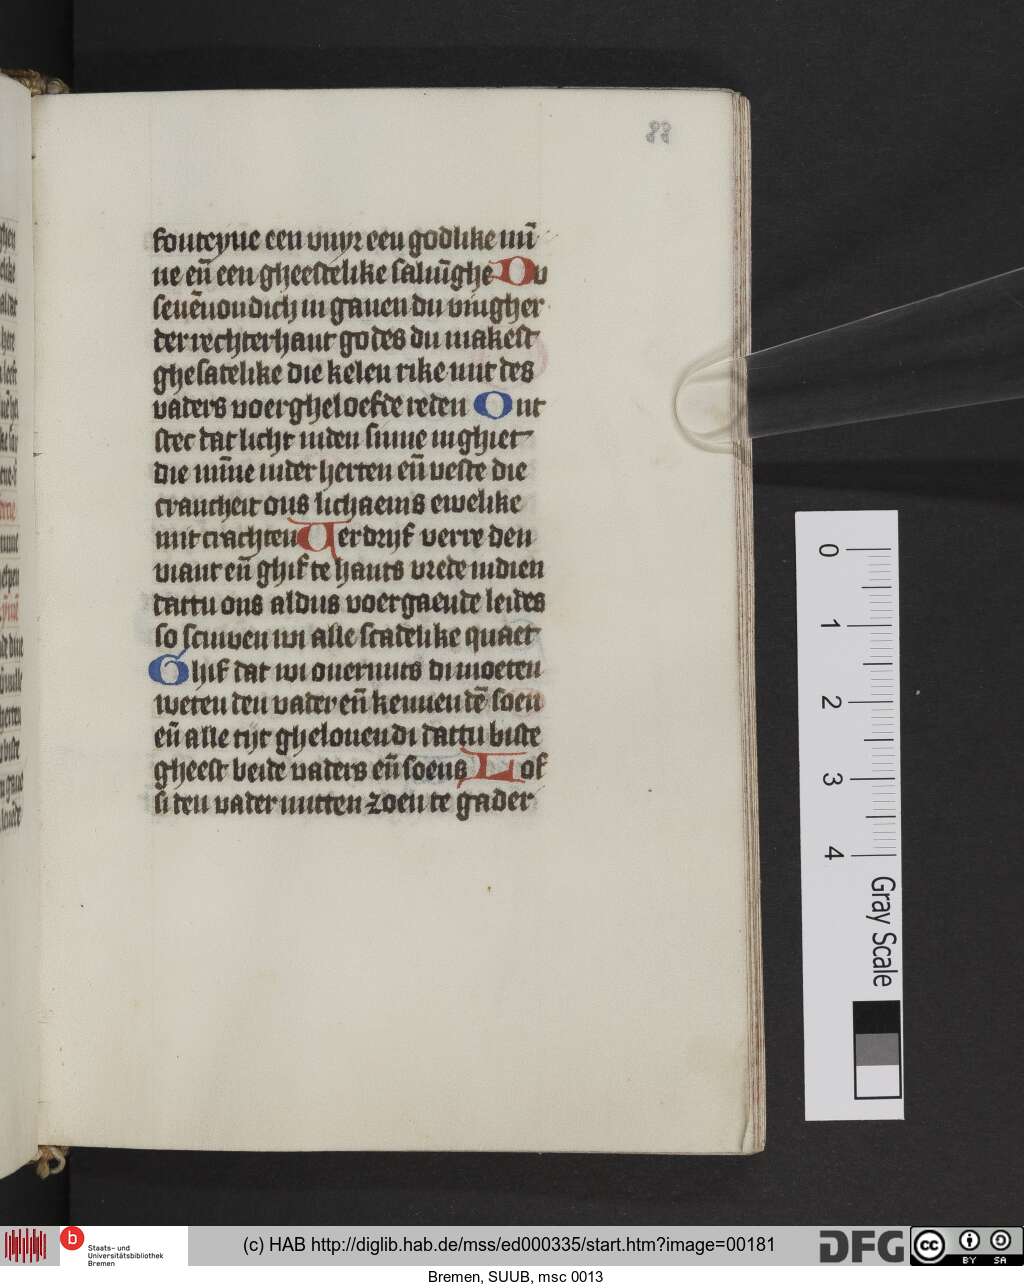 88
fonteyne een vuyr een godlike mī
ne eñ een gheestelike saluīghe Du
seuēuoudich in gauen du vīngher
der rechterhant godes du makest
ghesatelike die kelen rike mit des
vaders voergheloefde reden Ont
stec dat licht inden sinne inghiet
die mīne inder herten eñ veste die
crancheit ons lichaems ewelike
mit crachten Uerdryf verre den
viant eñ ghif te hants vrede indien
dattu ons aldus voergaende leides
so scuwen wi alle scadelike quaet
Ghif dat wi ouermits di moeten
weten den vader eñ kennen dē soen
eñ alle tijt ghelouen di dattu biste
gheest beide vaders eñ soens Lof
si den vader mitten zoen te gader
0
1
2
3
4
Gray Scale
b
Staats- und
Universitätsbibliothek
Bremen
(c) HAB http://diglib.hab.de/mss/ed000335/start.htm?image=00181
DFG
cc
BY SA
Bremen, SUUB, msc 0013